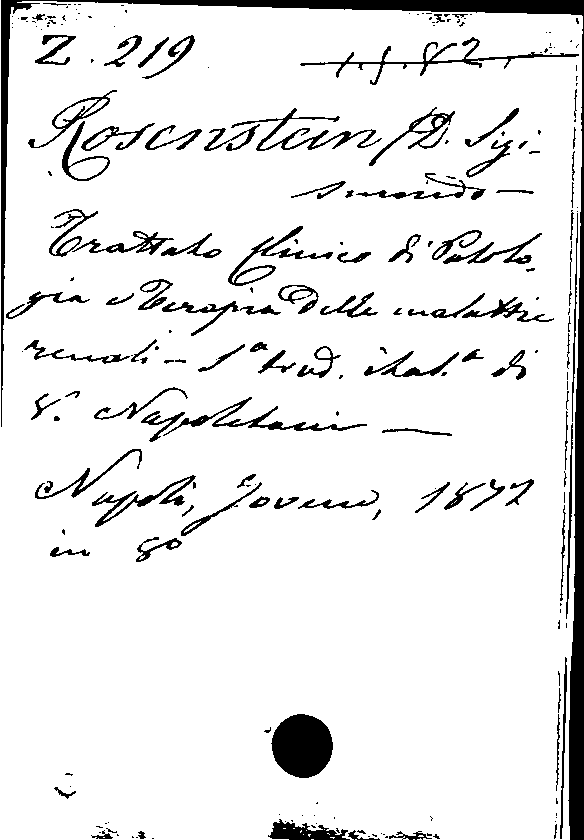 Z. 219
1.5.82.
Rosenstein (D. Sigi-
smondo —
Trattato Clinico di Patolo-
gia e Terapia delle malattie
renali — 1ª trad. ital.ª di
V. Napoletani —
Napoli, Jovene, 1872
in 8º